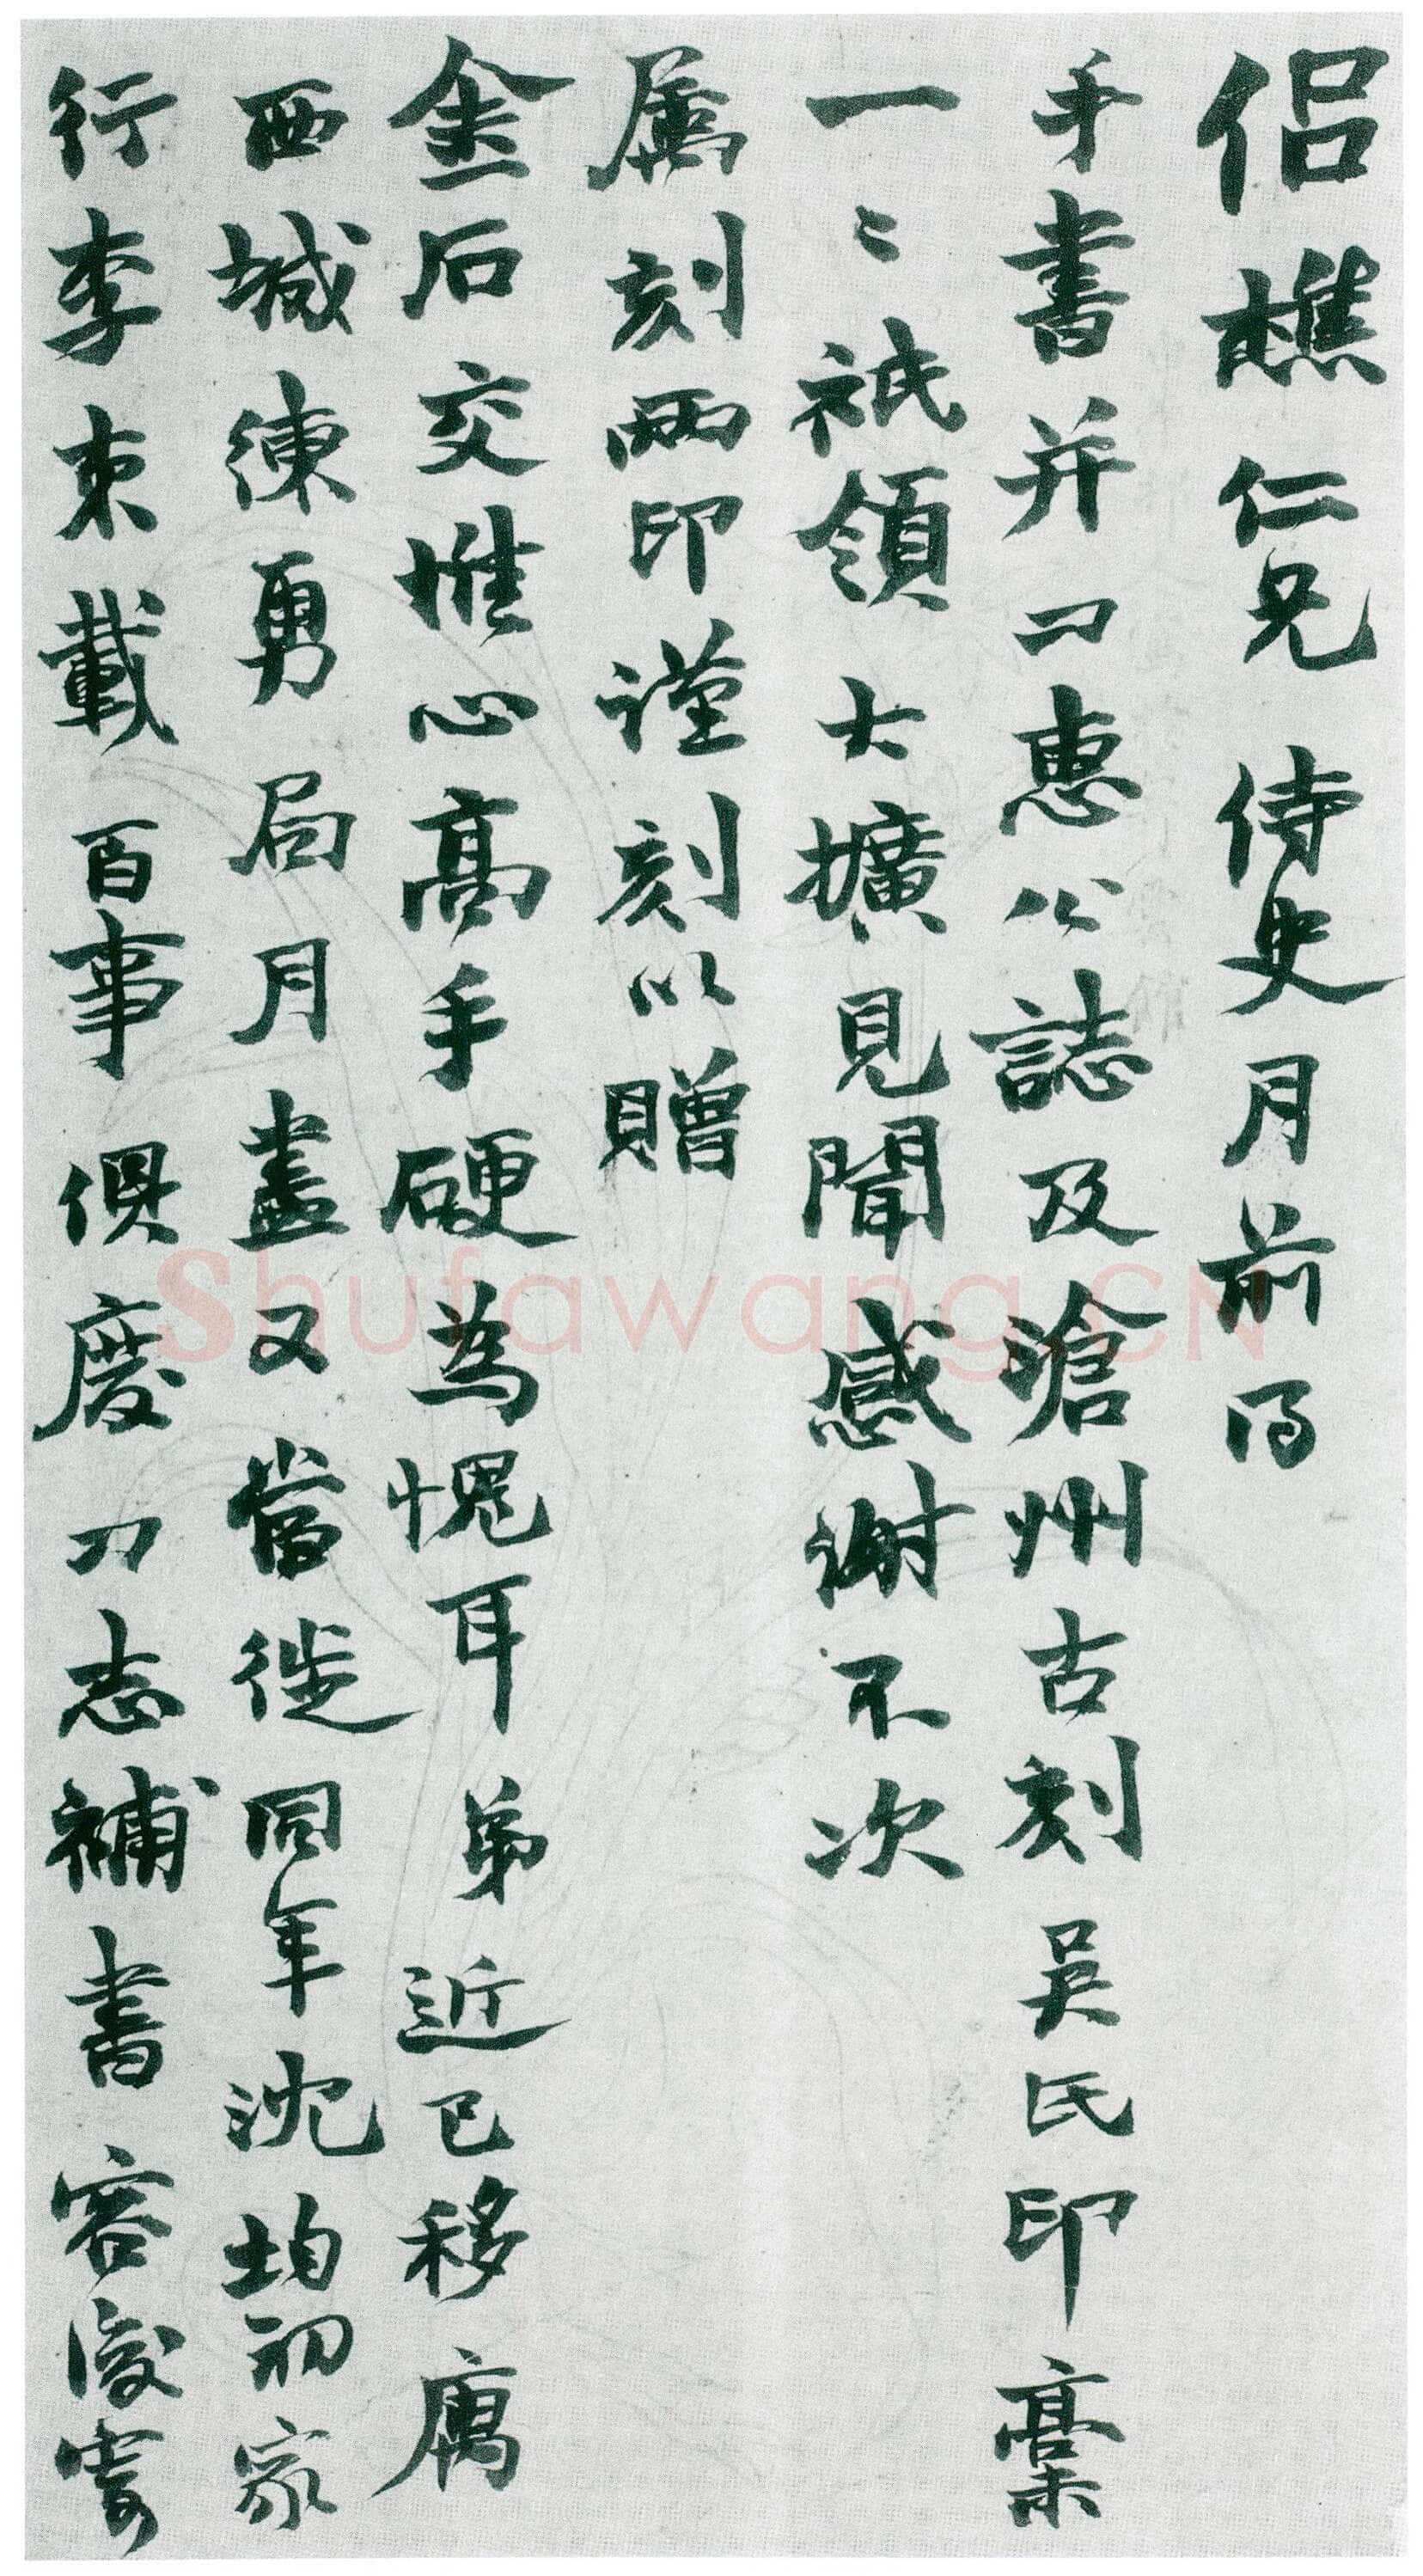 侣樵仁兄侍史月前得
手書并卩惠公誌及滄州古刻吴氏印稾
一〻祇領大擴見聞感謝不次
属刻兩印謹刻以贈
金石交惟心高手硬為愧耳弟近已移寓
西城練勇局月盡又當徙同年沈均初家
行李束載百事俱廢卩志補書容後寄
Shufawang.CN